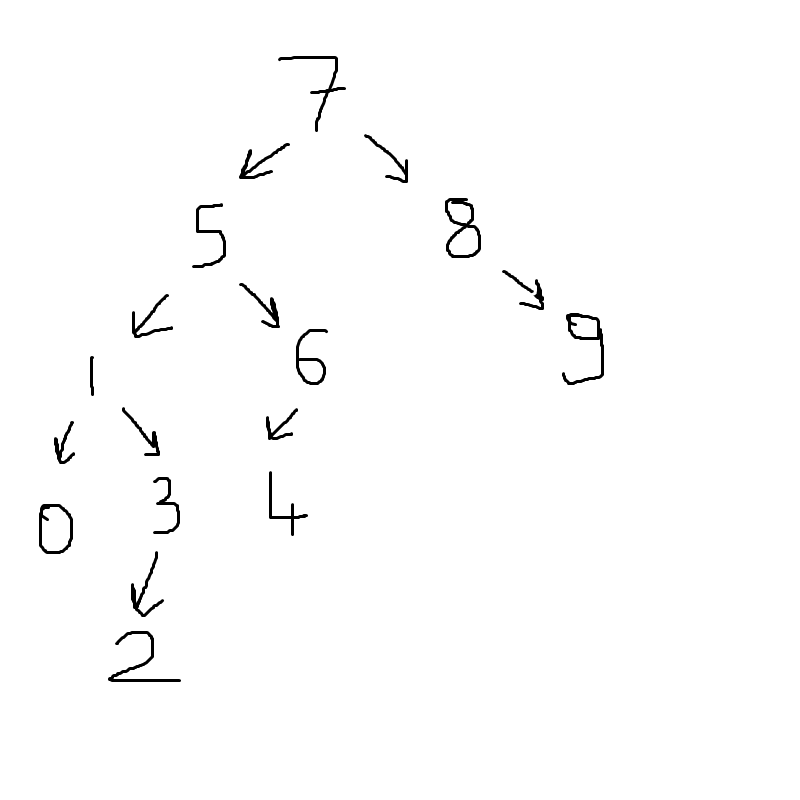 7
5 8
1 6 9
0 3 4
2